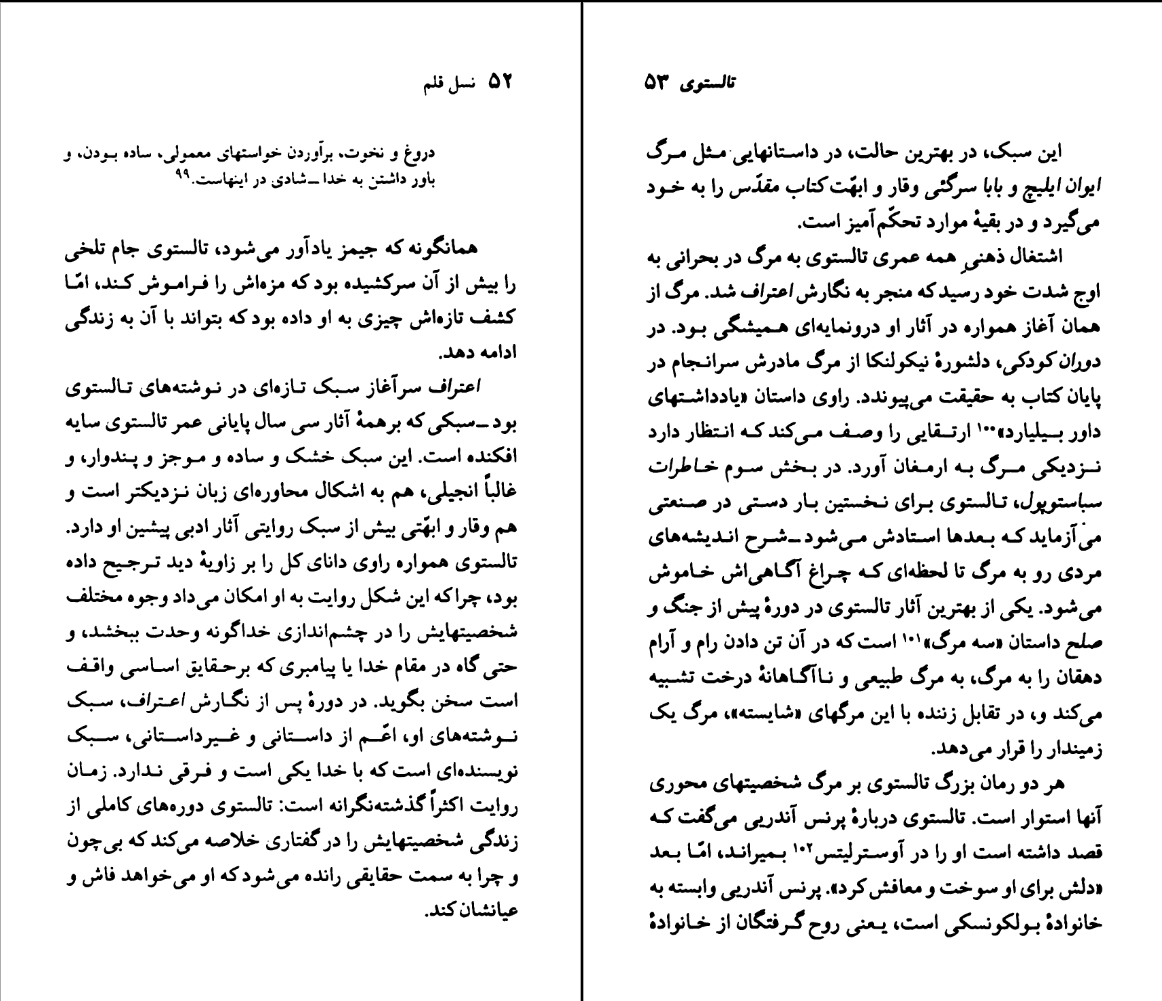 ۵۲ نسل قلم
دروغ و نخوت، برآوردن خواستهای معمولی، ساده بودن، و
باور داشتن به خدا ــ شادی در اینهاست.۹۹
همانگونه که جیمز یادآور می‌شود، تالستوی جام تلخی
را بیش از آن سرکشیده بود که مزه‌اش را فراموش کند، امّا
کشف تازه‌اش چیزی به او داده بود که بتواند با آن به زندگی
ادامه دهد.
اعتراف سرآغاز سبک تازه‌ای در نوشته‌های تالستوی
بود ــ سبکی که برهمهٔ آثار سی سال پایانی عمر تالستوی سایه
افکنده است. این سبک خشک و ساده و موجز و پندوار، و
غالباً انجیلی، هم به اشکال محاوره‌ای زبان نزدیکتر است و
هم وقار و ابهّتی بیش از سبک روایتی آثار ادبی پیشین او دارد.
تالستوی همواره راوی دانای کل را بر زاویهٔ دید ترجیح داده
بود، چراکه این شکل روایت به او امکان می‌داد وجوه مختلف
شخصیتهایش را در چشم‌اندازی خداگونه وحدت ببخشد، و
حتی گاه در مقام خدا یا پیامبری که برحقایق اساسی واقف
است سخن بگوید. در دورهٔ پس از نگارش اعتراف، سبک
نوشته‌های او، اعّم از داستانی و غیرداستانی، سبک
نویسنده‌ای است که با خدا یکی است و فرقی ندارد. زمان
روایت اکثراً گذشته‌نگرانه است: تالستوی دوره‌های کاملی از
زندگی شخصیتهایش را در گفتاری خلاصه می‌کند که بی‌چون
و چرا به سمت حقایقی رانده می‌شود که او می‌خواهد فاش و
عیانشان کند.
تالستوی ۵۳
این سبک، در بهترین حالت، در داستانهایی مثل مرگ
ایوان ایلیچ و بابا سرگئی وقار و ابهّت کتاب مقدّس را به خود
می‌گیرد و در بقیهٔ موارد تحکّم‌آمیز است.
اشتغال ذهنیِ همه عمری تالستوی به مرگ در بحرانی به
اوج شدت خود رسید که منجر به نگارش اعتراف شد. مرگ از
همان آغاز همواره در آثار او درونمایه‌ای همیشگی بود. در
دوران کودکی، دلشورهٔ نیکولنکا از مرگ مادرش سرانجام در
پایان کتاب به حقیقت می‌پیوندد. راوی داستان «یادداشتهای
داور بیلیارد»۱۰۰ ارتقایی را وصف می‌کند که انتظار دارد
نزدیکی مرگ به ارمغان آورد. در بخش سوم خاطرات
سباستوپول، تالستوی برای نخستین بار دستی در صنعتی
می‌آزماید که بعدها استادش می‌شود ــ شرح اندیشه‌های
مردی رو به مرگ تا لحظه‌ای که چراغ آگاهی‌اش خاموش
می‌شود. یکی از بهترین آثار تالستوی در دورهٔ پیش از جنگ و
صلح داستان «سه مرگ»۱۰۱ است که در آن تن دادن رام و آرام
دهقان را به مرگ، به مرگ طبیعی و ناآگاهانهٔ درخت تشبیه
می‌کند و، در تقابل زننده با این مرگهای «شایسته»، مرگ یک
زمیندار را قرار می‌دهد.
هر دو رمان بزرگ تالستوی بر مرگ شخصیتهای محوری
آنها استوار است. تالستوی دربارهٔ پرنس آندریی می‌گفت که
قصد داشته است او را در آوسترلیتس۱۰۲ بمیراند، امّا بعد
«دلش برای او سوخت و معافش کرد». پرنس آندریی وابسته به
خانوادهٔ بولکونسکی است، یعنی روح گرفتگان از خانوادهٔ